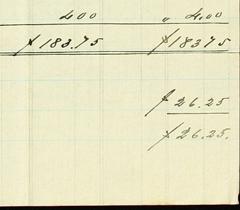 400 " 4.00
$183.75 $18375
$26.25
$26.25.